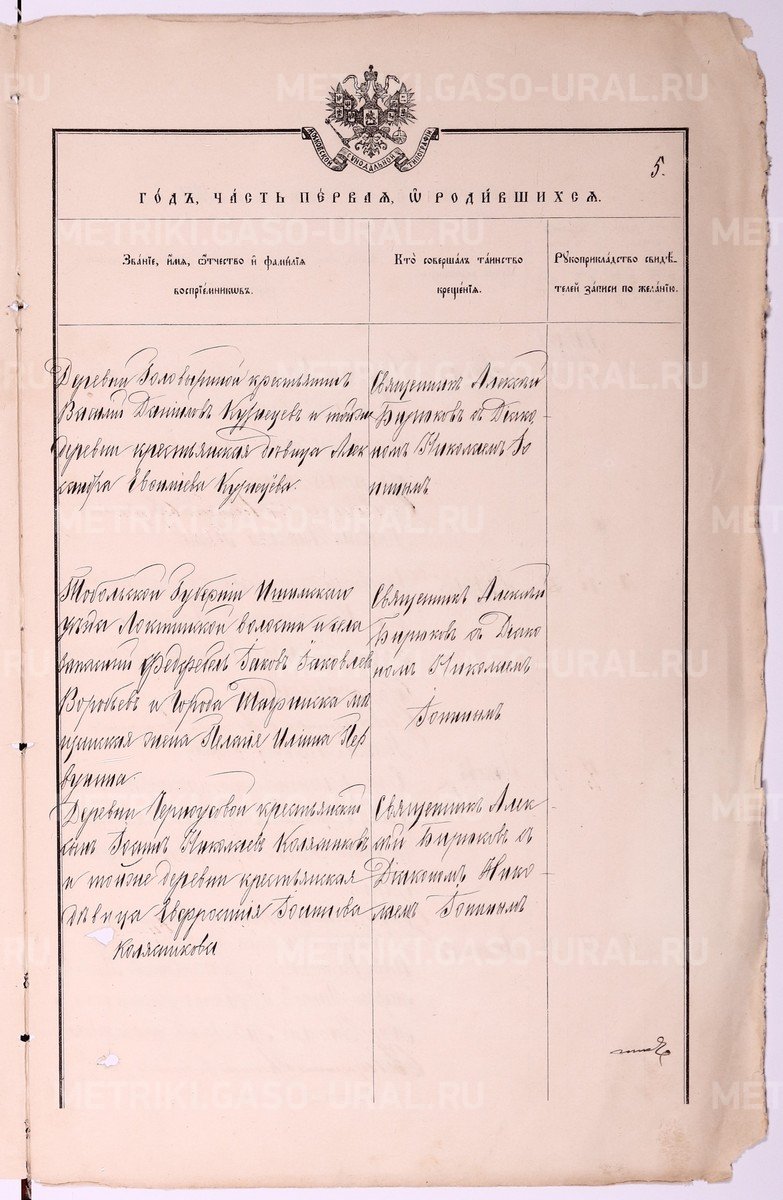 МОСКОВСКОЙ СУНОДАЛЬНОЙ ТИПОГРАФІИ
5.
ГО́ДЪ, ЧА́СТЬ ПЕ́РВАЯ, Ѽ РОДИ́ВШИХСЯ.
Зва́нїе, и́мя, ѻ҆́тчество и҆ фами́лїя
воспрїе́мникѡвъ.
Кто̀ соверша́лъ та́инство
креще́нїя.
Рꙋкоприкла́дство свидѣ́-
телей за́писи по жела́нїю.
Деревни Головыриной крестьянинъ
Василій Даниловъ Кузнецевъ и тойже
деревни крестьянская дѣвица Алек
сандра Евѳиміева Кузнецева.
Священникъ Алексій
Бирюковъ съ Діако
номъ Николаемъ
Тобольской Губерніи Ишимскаго
уѣзда Локтинской волости и села
запасный Іаковъ Іаковлевъ
Воробьевъ и города Шадринска мѣ
щанская жена Пелагія Иліина Пер
вушина
Священникъ Алексій
Бирюковъ съ Діако
номъ Николаемъ
Деревни Черноусовой крестьянскій
сынъ Іоаннъ Николаевъ Колясниковъ
и тойже деревни крестьянская
дѣвица Евфросинія Іоаннова
Колясникова
Священникъ Алек
сѣй Бирюковъ съ
Діакономъ Нико
лаемъ
METRIKI.GASO-URAL.RU